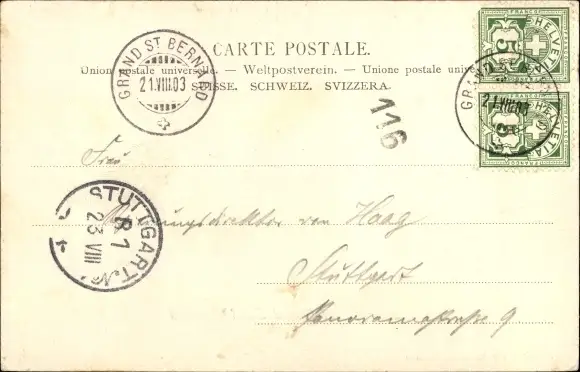 CARTE POSTALE.
Union postale universelle. — Weltpostverein. — Unione postale universale
SUISSE. SCHWEIZ. SVIZZERA.
GRAND ST BERNARD
21.VIII.03
5
HELVETIA
FRANCO
GRAND ST BERNARD
21.VIII.03
5
HELVETIA
FRANCO
116
Frau
STUTTGART No
B 1
23 VIII
von Haag
Stuttgart
Panoramastraße 9